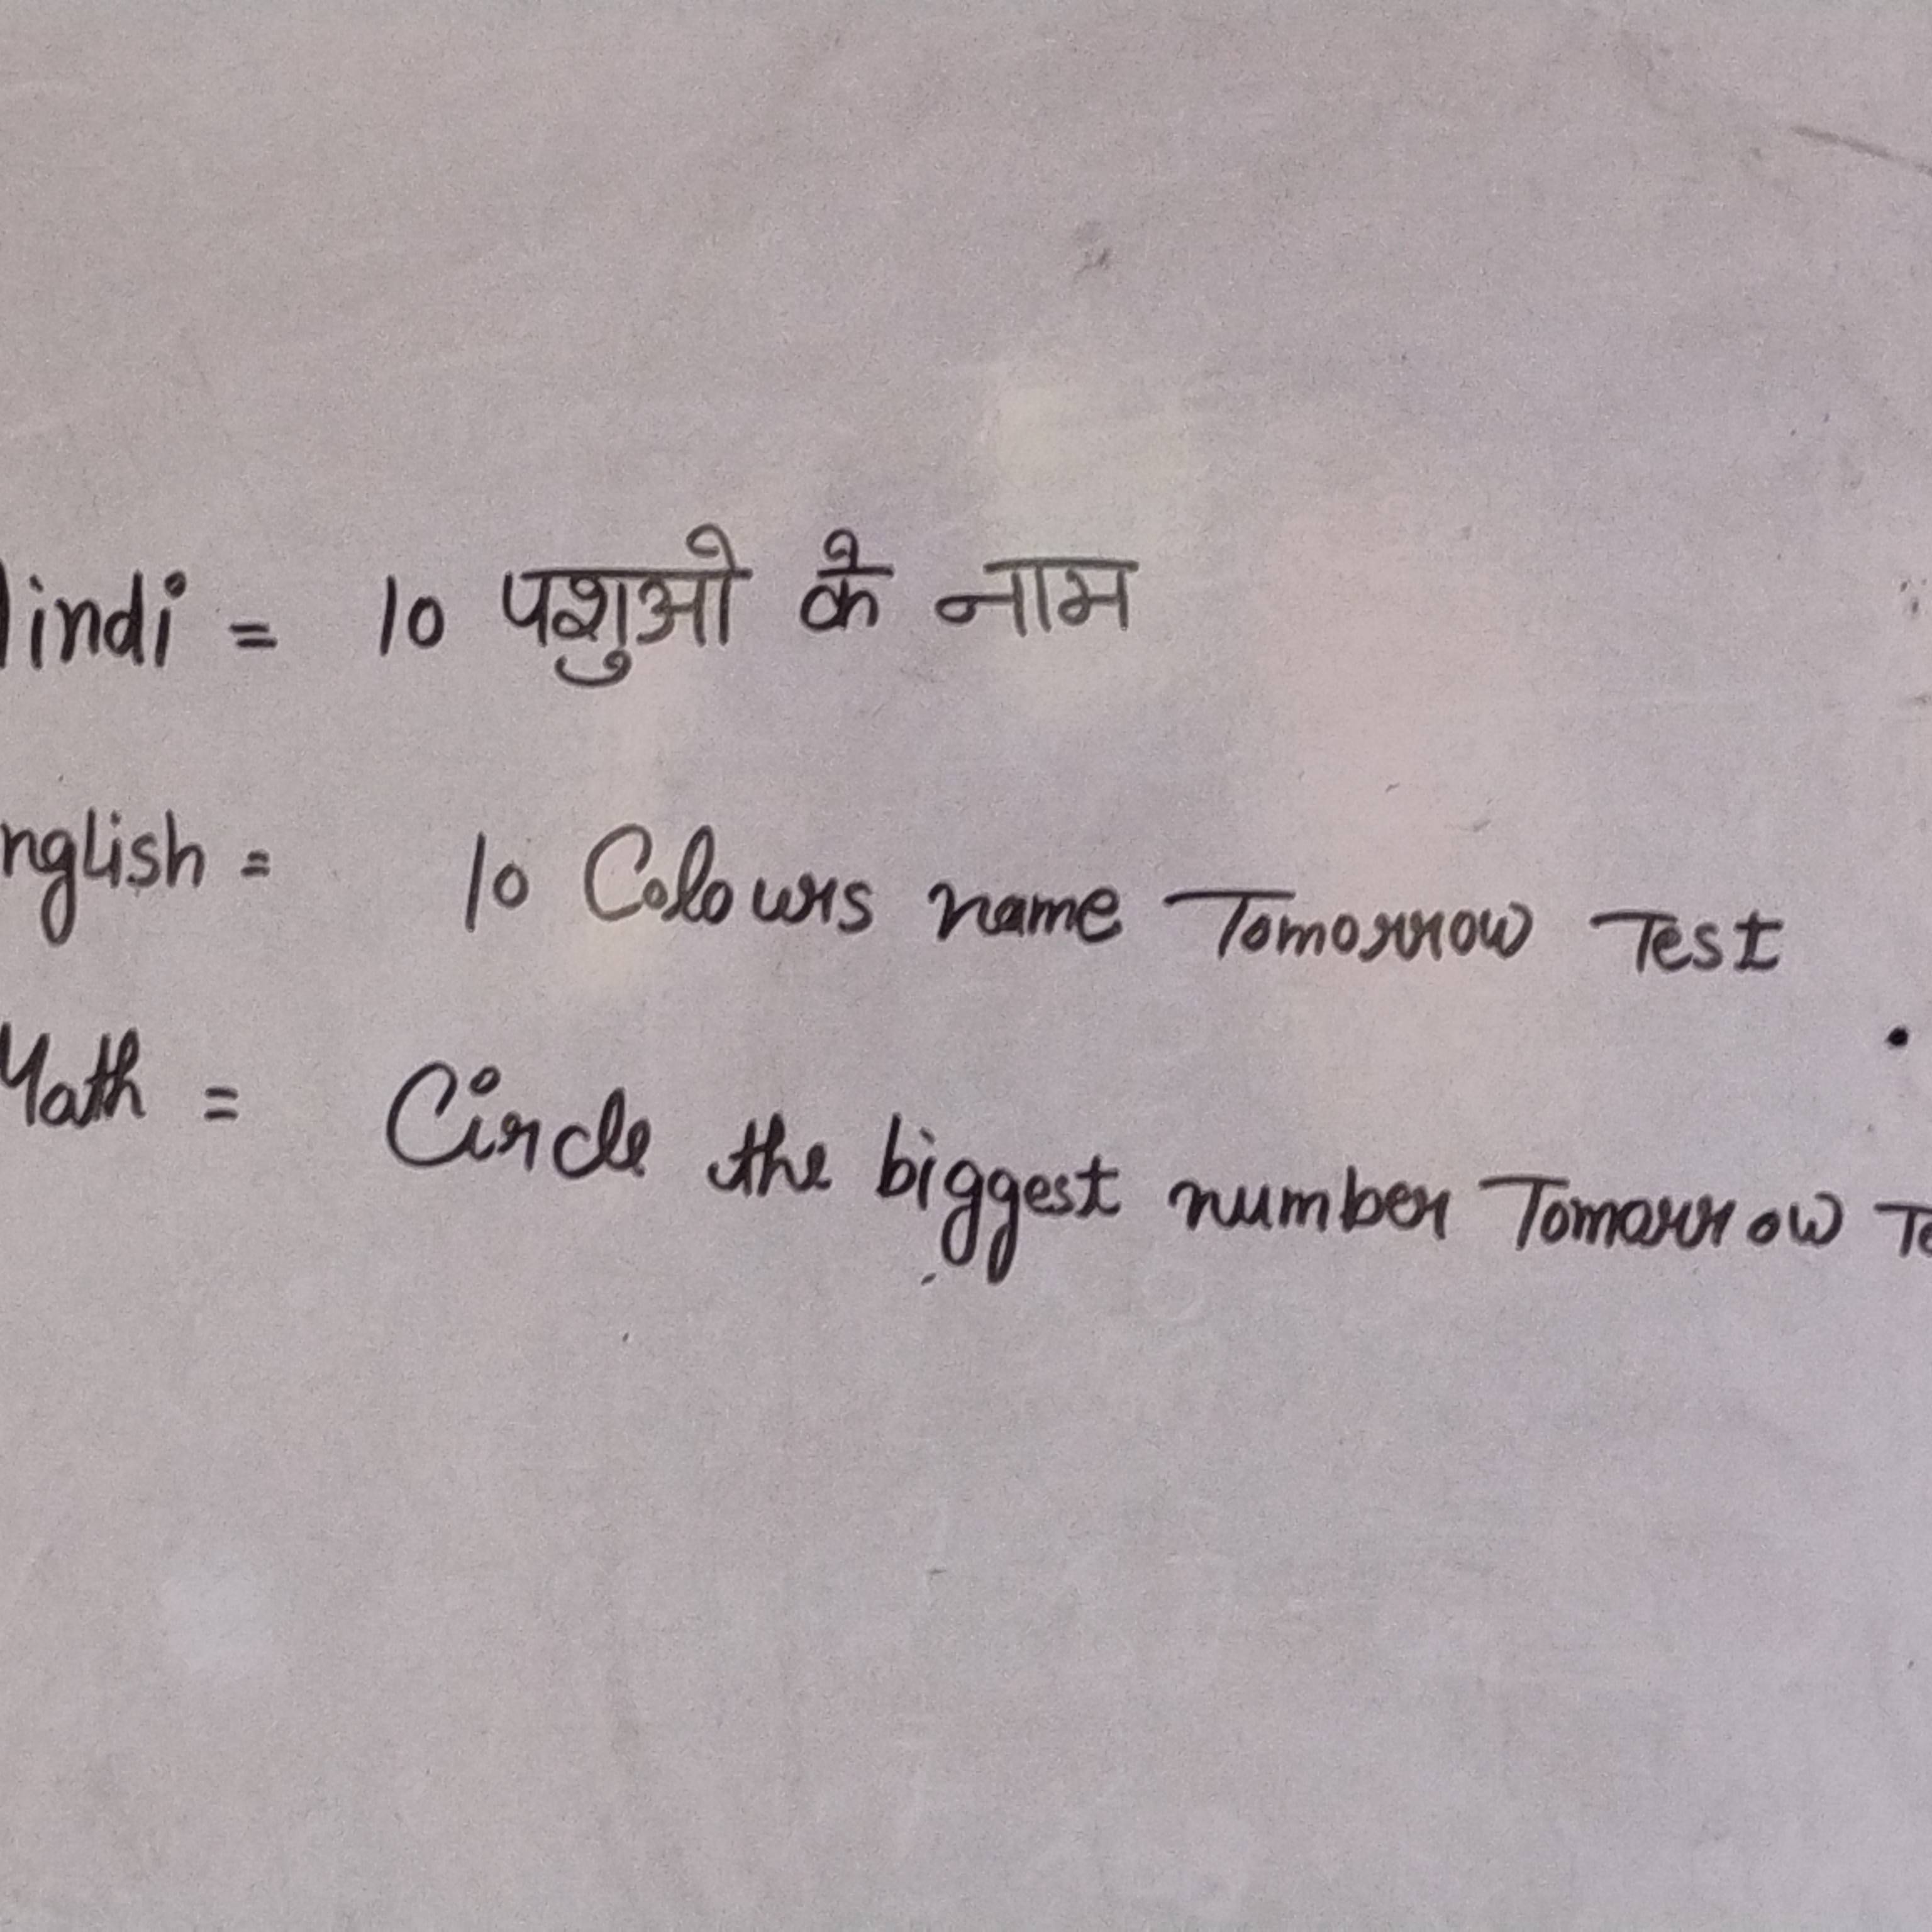 Hindi = 10 पशुओ के नाम
English = 10 Colours name Tomorrow Test
Math = Circle the biggest number Tomorrow Te